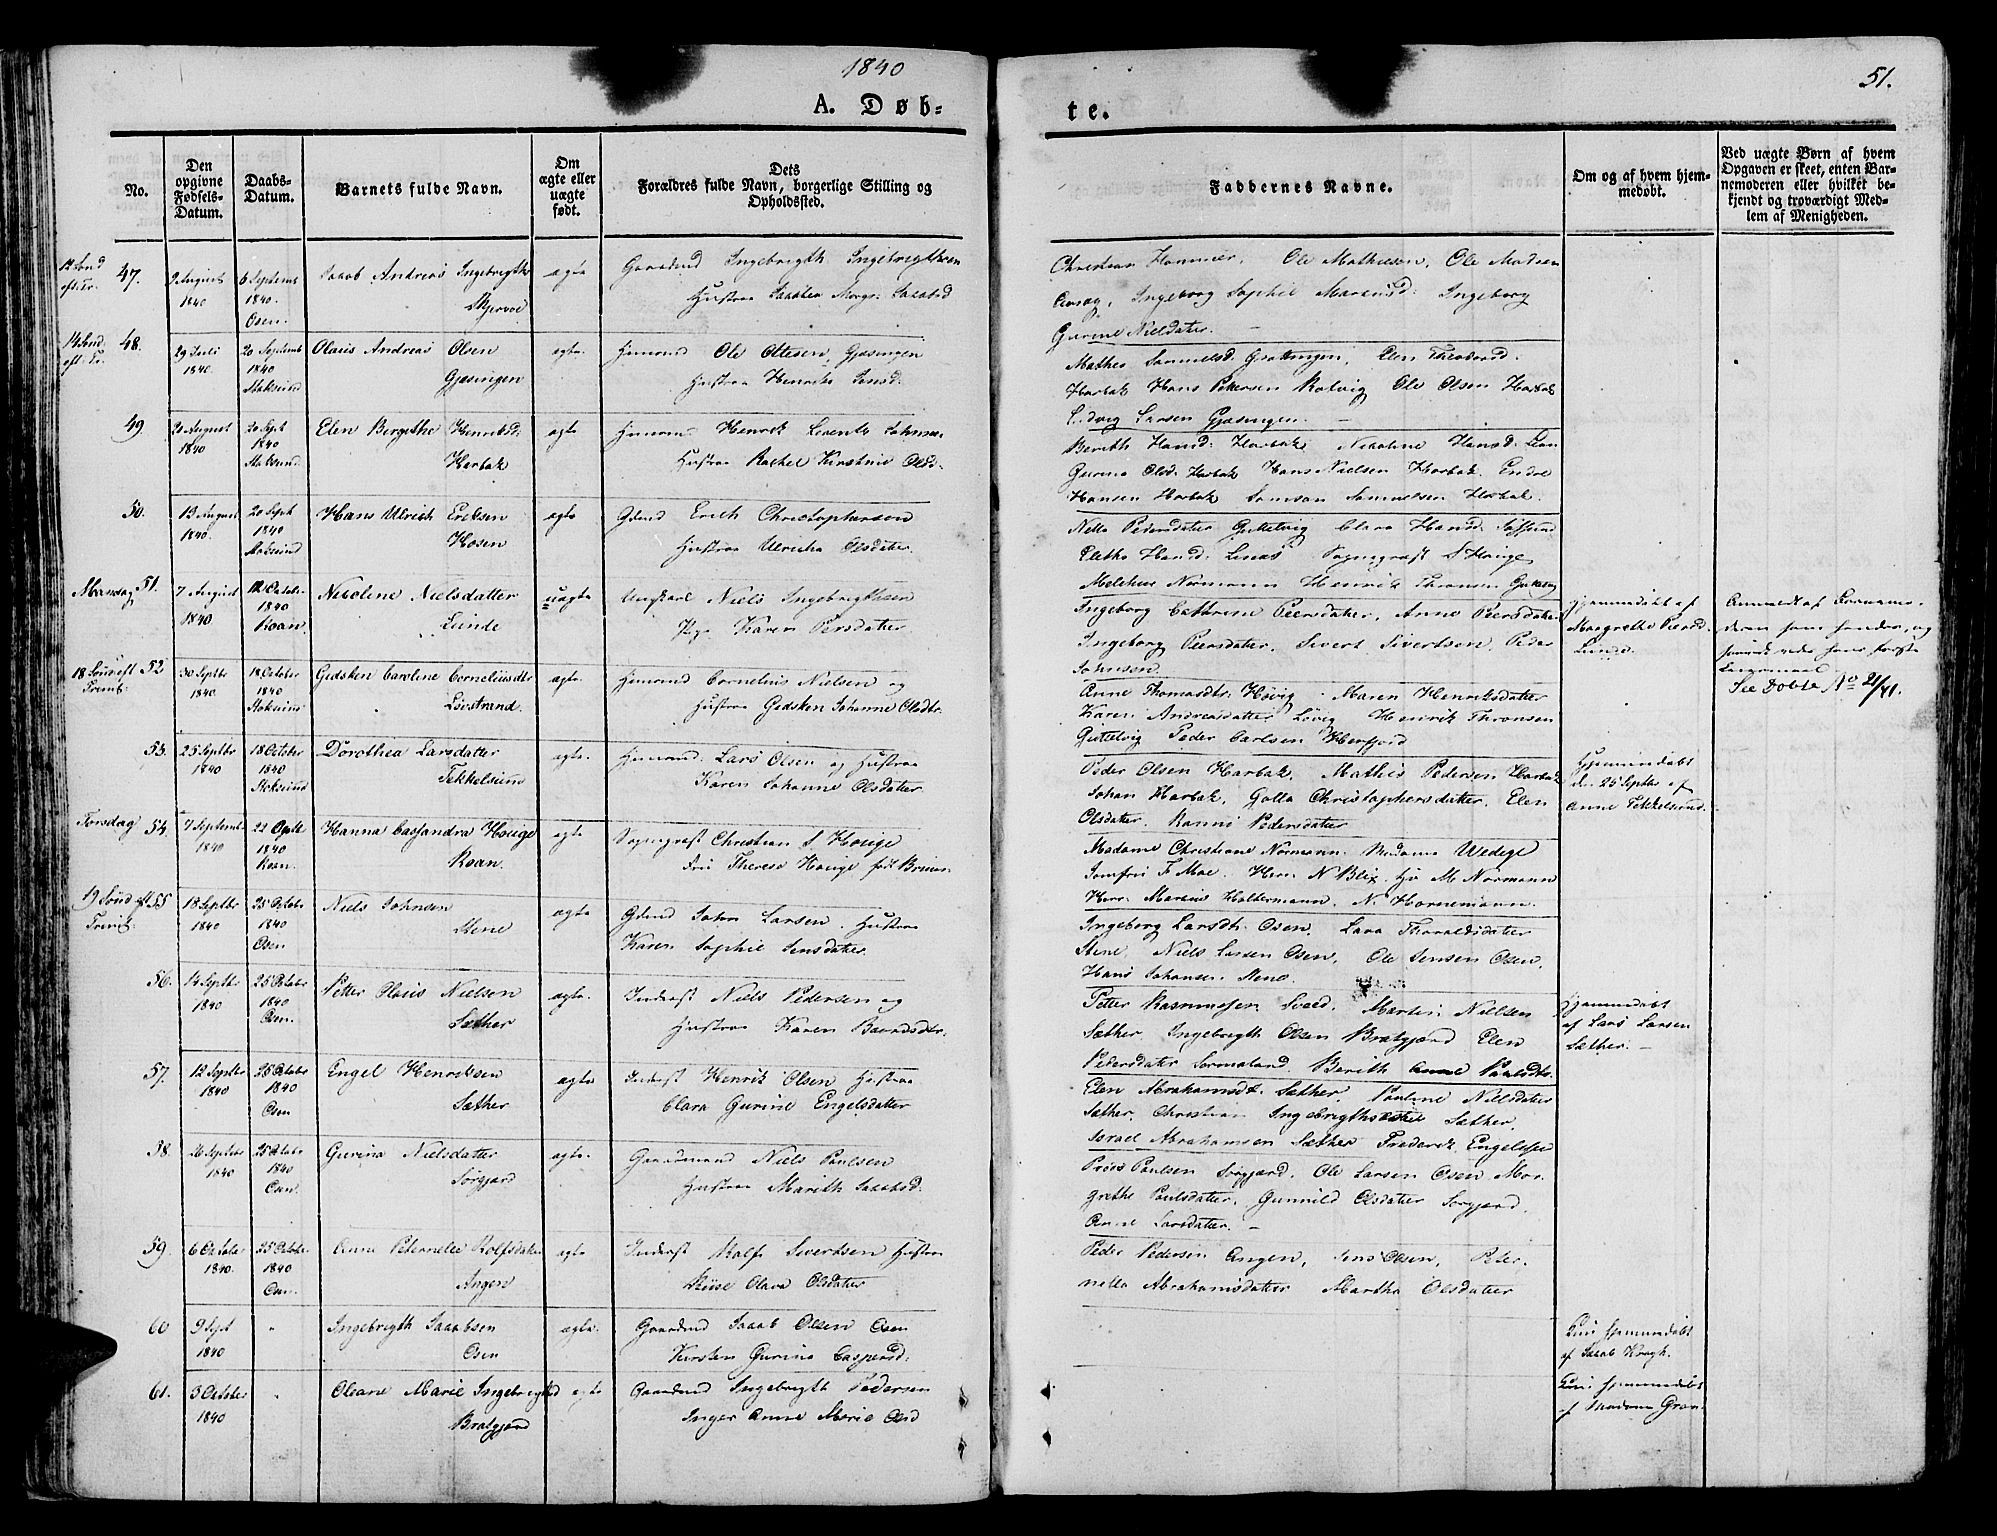 1840
51.
A. Døb-
te.
No.
Den opgivne Fødsels-Datum.
Daabs-Datum.
Barnets fulde Navn.
Om ægte eller uægte født.
Dets Forældres fulde Navn, borgerlige Stilling og Opholdssted.
Faddernes Navne.
Om og af hvem hjem-medøbt.
Ved uægte Børn af hvem Opgaven er skeet, enten Bar-nemoderen eller hvilket be-kjendt og troværdigt Med-lem af Menigheden.
47.
9 August 1840
6 Septemb 1840. Osen.
Jacob Andreas Ingebrigths
Skjervøe
ægte
Gaardmd Ingebrigth Ingebrigthsen
Hustrue
Christian Hammer, Ole Mathiesen, Ole Madsen
Ingeborg Sophie Ingeborg
Gurine Nielsdater.
14 Sond. eft. Tr.
48.
29 Juli 1840.
20 Septemb 1840 Stoksund
Olaus Andreas Olsen
Gjæsingen
ægte.
Huusmd Ole Ottesen, Gjæsingen
Hustrue Henrike Jensd.
Mathea Samuelsd. Elen Theodorsd.
Harbak Hans Petersen Ratvig Ole Olsen Harbak
Ludvig Larsen Gjæsingen.
49.
20 August 1840
20 Sept 1840 Stoksund
Elen Bergithe Henriksd:
Harbak
ægte
Huusmd Henrik Johnsen
Hustrue Rachel Kirstine Olsd.
Berith Hansd: Harbak Nicoline Hansd.
Gurina Olsd. Harbak Hans Nielsen Harbak. Endre
Hansen Harbak Samson Samuelsen Harbak.
50.
12 August 1840.
20 Sept 1840 Stoksund
Hans Ulrich Eriksen
Hosen
ægte
Gdmd Erich Christophersen
Hustrue Ulricha Olsdater.
Nella Pedersdater Guttelvig Clara Hansd.
Hansd: Linæs Sogneprest S Houge
Melchior Normann Henrik Thronsen Guttelvig
Mandag
51.
7 August 1840
12 October 1840 Roan.
Nicoline Nielsdatter
Lunde
uægte
Ungkarl Niels Ingebrigthsen
Pig. Karen Persdatter
Ingeborg Cathrine Peersdater, Anne Peersdater
Ingeborg Peersdater. Sivert Sivertsen, Peder
Johnsen
Hjemmedøbt af
Margrethe Peersd.
Lund.
Anmeldt af Barnemo-
deren som hendes, og
hans første
Leiermaal
See Døbte No 21/41.
18 Sønd eft Trinit:
52
30 Septbr 1840.
18 October 1840 Stoksund
Gidsken Caroline Corneliusdtr
Løvstrand.
ægte.
Huusmd Cornelius Nielsen og
Hustrue Gidsken Johanne Olsdtr.
Anne Thomasdtr. Høvig Maren Henriksdatter
Karen Andreasdatter Løvig Henrik Thronsen
Guttelvig Peder Carlsen Herfjord
53.
25 Septbr 1840
18 October 1840 Stoksund
Dorothea Larsdatter
Tekkelsund
ægte.
Huusmd. Lars Olsen og Hustrue
Karen Johanne Olsdatter.
Peder Olsen Harbak. Mathis Pedersen Harbak
Johan Harbak, Golla Christophersdatter. Elen
Olsdatter. Ranni Pedersdatter
Hjemmedøbt
den 25 Septbr af
Anne Tekkelsund.
Torsdag
54.
7 Septemb. 1840
22 Octb 1840 Roan.
Hanna Cassandra Houge
Roan.
ægte
Sogneprest Christian S Houge
Therese Houge født
Madame Christiane Normann. Madame Wedege
Jomfru F Moe. Herr N Blix. M Normann
Herr. Marius Haltermann. N. Hornemann.
19 Sønd eft Trinit:
55
18 Septbr 1840
25 October 1840 Osen
Niels Johnsen
Stene
ægte
Gdmd John Larsen. Hustrue
Karen Sophie Jensdater.
Ingeborg Larsdtr. Osen. Lava Tharaldsdatter
Stene. Niels Larsen Osen. Ole Jensen Osen.
Hans Johansen Stene.
56.
14 Septbr 1840
25 Octobr 1840 Osen.
Petter Olaus Nielsen
Sæther
ægte.
Inderst Niels Pedersen og
Hustrue Karen Baardsdtr.
Petter Rasmussen Martin Nielsen
Sæther Ingebrigth Olsen Bratgjerd Elen
Pedersdater Sormeland. Berith Anne Paulsdtr.
Hjemmedøbt
af Lars Larsen
Sæther.
57.
12 Septbr 1840
25 Octobr 1840 Osen
Engel Henriksen
Sæther
ægte
Inderst Henrik Olsen Hustrue
Clara Gurine Engelsdatter
Elen Abrahamsdt. Sæther. Pauline Nielsdatter
Sæther. Christian Ingebrigthsen Sæther.
Israel Abrahamsen Sæther Frederik Engelssen
58.
26 Septbr 1840
25 Octobr 1840 Osen.
Gurina Nielsdatter
Sørgjerd
ægte.
Gaardmand Niels Paulsen
Hustrue Marith Jacobsd.
Paulsen Sørgjærd. Ole Larsen Osen Mar-
grethe Paulsdatter. Gunnild Olsdatter Sørgjærd.
Anne Larsdatter.
59.
6 October 1840.
25 October 1840 Osen.
Anne Peternelle Rolfsdater
Angen
ægte
Inderst Rolf Sivertsen Hustrue
Olava Olsdatter
Peder Pedersen Angen, Jens Olsen, Peter-
nella Abrahamsdatter Martha Olsdatter
60
9 Sept 1840
"
Ingebrigth Jacobsen
Osen
ægte.
Gaardmd Jacob Olsen Osen
Kirsten Gurina Caspersd:
Kun hjemmedøbt
af Jacob Krogh.
61.
3 October 1840
"
Oleane Marie Ingebrigtsd
Bratgjerd
ægte
Gaardmd Ingebrigth Pedersen
Inger Anne Marie Olsd
Kun hjemmedøbt
af Madame Grøn